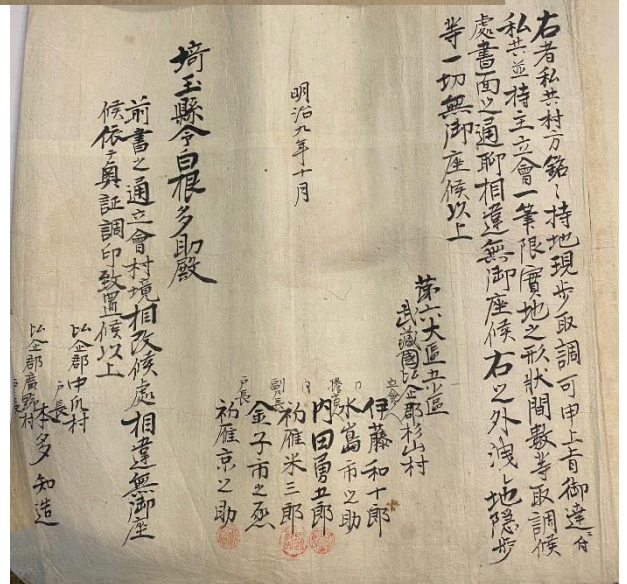 右者私共村方銘〻持地現歩取調可申上旨御達ニ付
私共並持主立會一筆限實地之形状間數等取調候
處書面之通聊相違無御座候右之外洩地隠歩
等一切無御座候以上
明治九年十月
第六大區五小區
武藏國比企郡杉山村
立會人
伊藤和十郎
水島市之助
内田勇五郎
初雁米三郎
副戸長
金子市之烝
戸長
初雁京之助
埼玉縣令白根多助殿
前書之通立會村境相改候處相違無御座
候依テ奥証調印致置候以上
比企郡中爪村
戸長
本多知造
比企郡廣野村
戸長